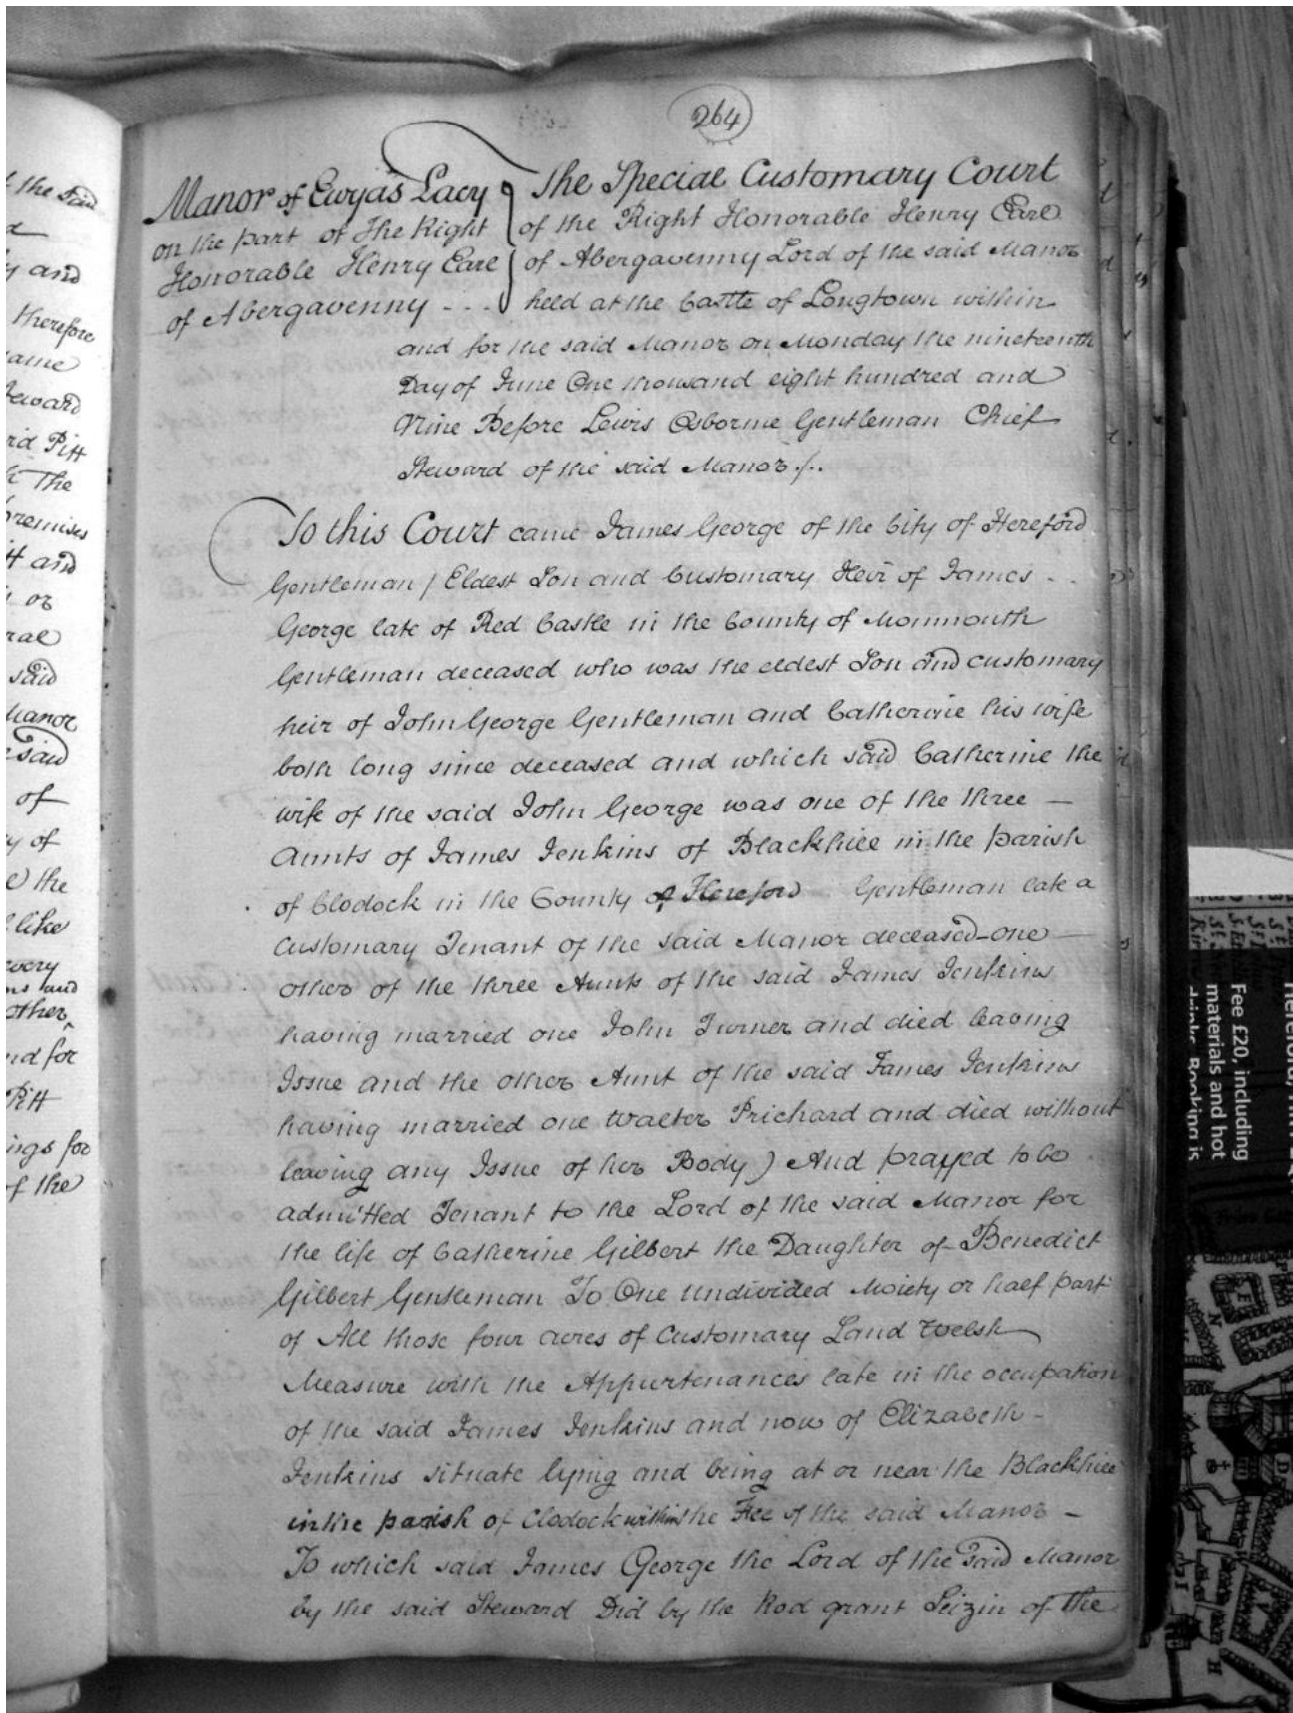 264
Manor of Ewyas Lacy
on the part of The Right
Honorable Henry Earl
of Abergavenny - - -
The Special Customary Court
of the Right Honorable Henry Earl
of Abergavenny Lord of the said Manor
held at the Castle of Longtown within
and for the said Manor on Monday the nineteenth
Day of June One thousand eight hundred and
Nine Before Lewis Osborne Gentleman Chief
Steward of the said Manor /..
To this Court came James George of the City of Hereford
Gentleman / Eldest Son and Customary Heir of James - -
George late of Red Castle in the County of Monmouth
Gentleman deceased who was the eldest Son and customary
heir of John George Gentleman and Catherine his wife
both long since deceased and which said Catherine the
wife of the said John George was one of the three —
Aunts of James Jenkins of Blackhill in the parish
of Clodock in the County of Hereford Gentleman late a
Customary Tenant of the said Manor deceased - one —
other of the three Aunts of the said James Jenkins
having married one John Turner and died leaving
Issue and the other Aunt of the said James Jenkins
having married one Walter Prichard and died without
leaving any Issue of her Body) And prayed to be
admitted Tenant to the Lord of the said Manor for
the life of Catherine Gilbert the Daughter of Benedict
Gilbert Gentleman To One undivided Moiety or half part
of All those four acres of Customary Land Welsh
Measure with the Appurtenances late in the occupation
of the said James Jenkins and now of Elizabeth -
Jenkins situate lying and being at or near the Blackhill
in the parish of Clodock within the Fee of the said Manor -
To which said James George the Lord of the said Manor
by the said Steward Did by the Rod grant Seizin of the
the said
and
therefore
same
Steward
Pitt
The
premises
and
or
said
Manor
said
of
of
the
like
every
and
other
and for
Pitt
for
of the
Fee £20, including
materials and hot
drinks. Booking is